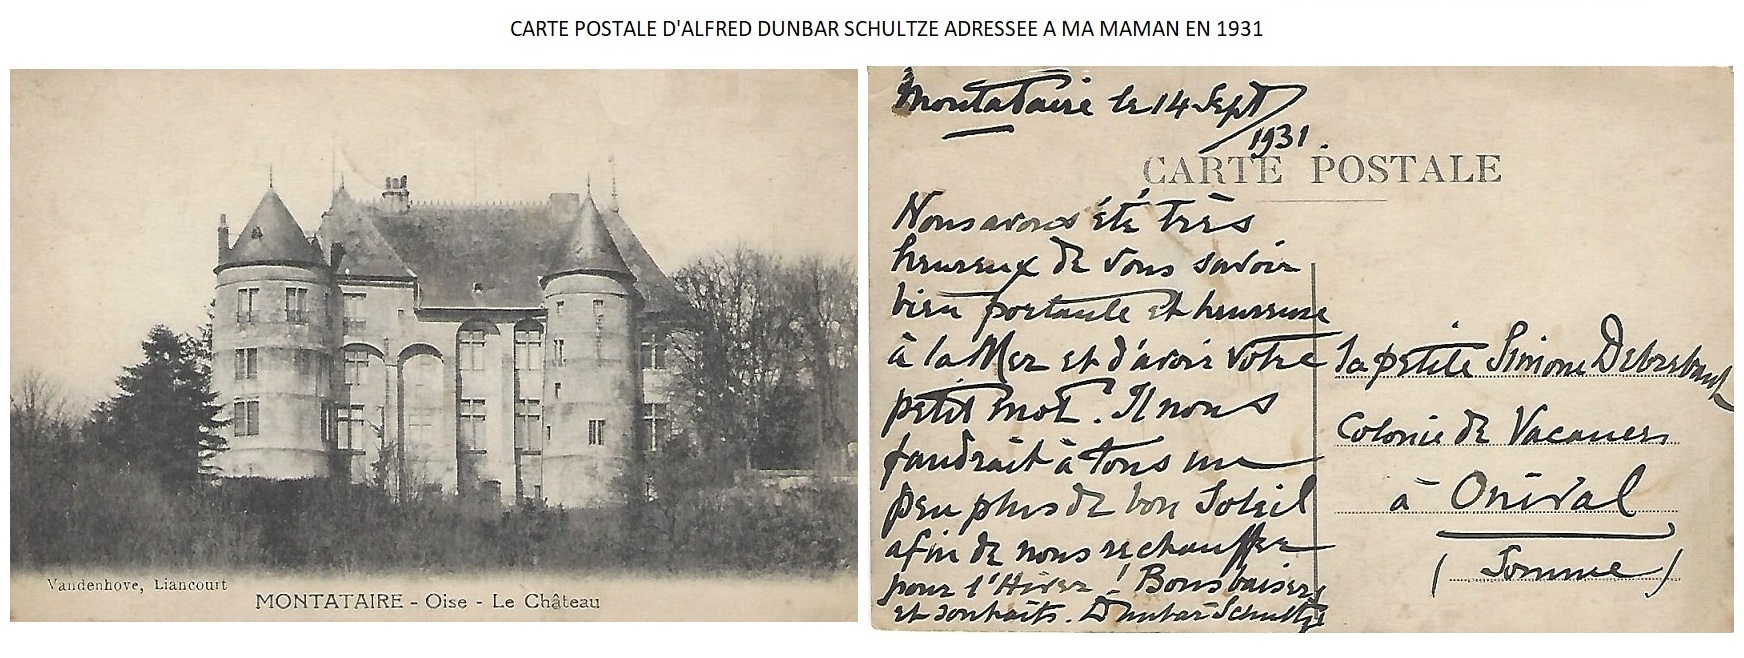 CARTE POSTALE D'ALFRED DUNBAR SCHULTZE ADRESSEE A MA MAMAN EN 1931
Vandenhove, Liancourt
MONTATAIRE - Oise - Le Château
Montataire le 14 Sept
1931.
CARTE POSTALE
Nous avons été très
heureux de vous savoir
bien portante et heureuse
à la Mer et d'avoir votre
petit mot. Il nous
faudrait à tous un
peu plus de bon Soleil
afin de nous rechauffer
pour l'Hiver! Bons baisers
et souhaits. Dunbar Schultze
La petite Simone
Colonie de Vacances
à Onival
(Somme)